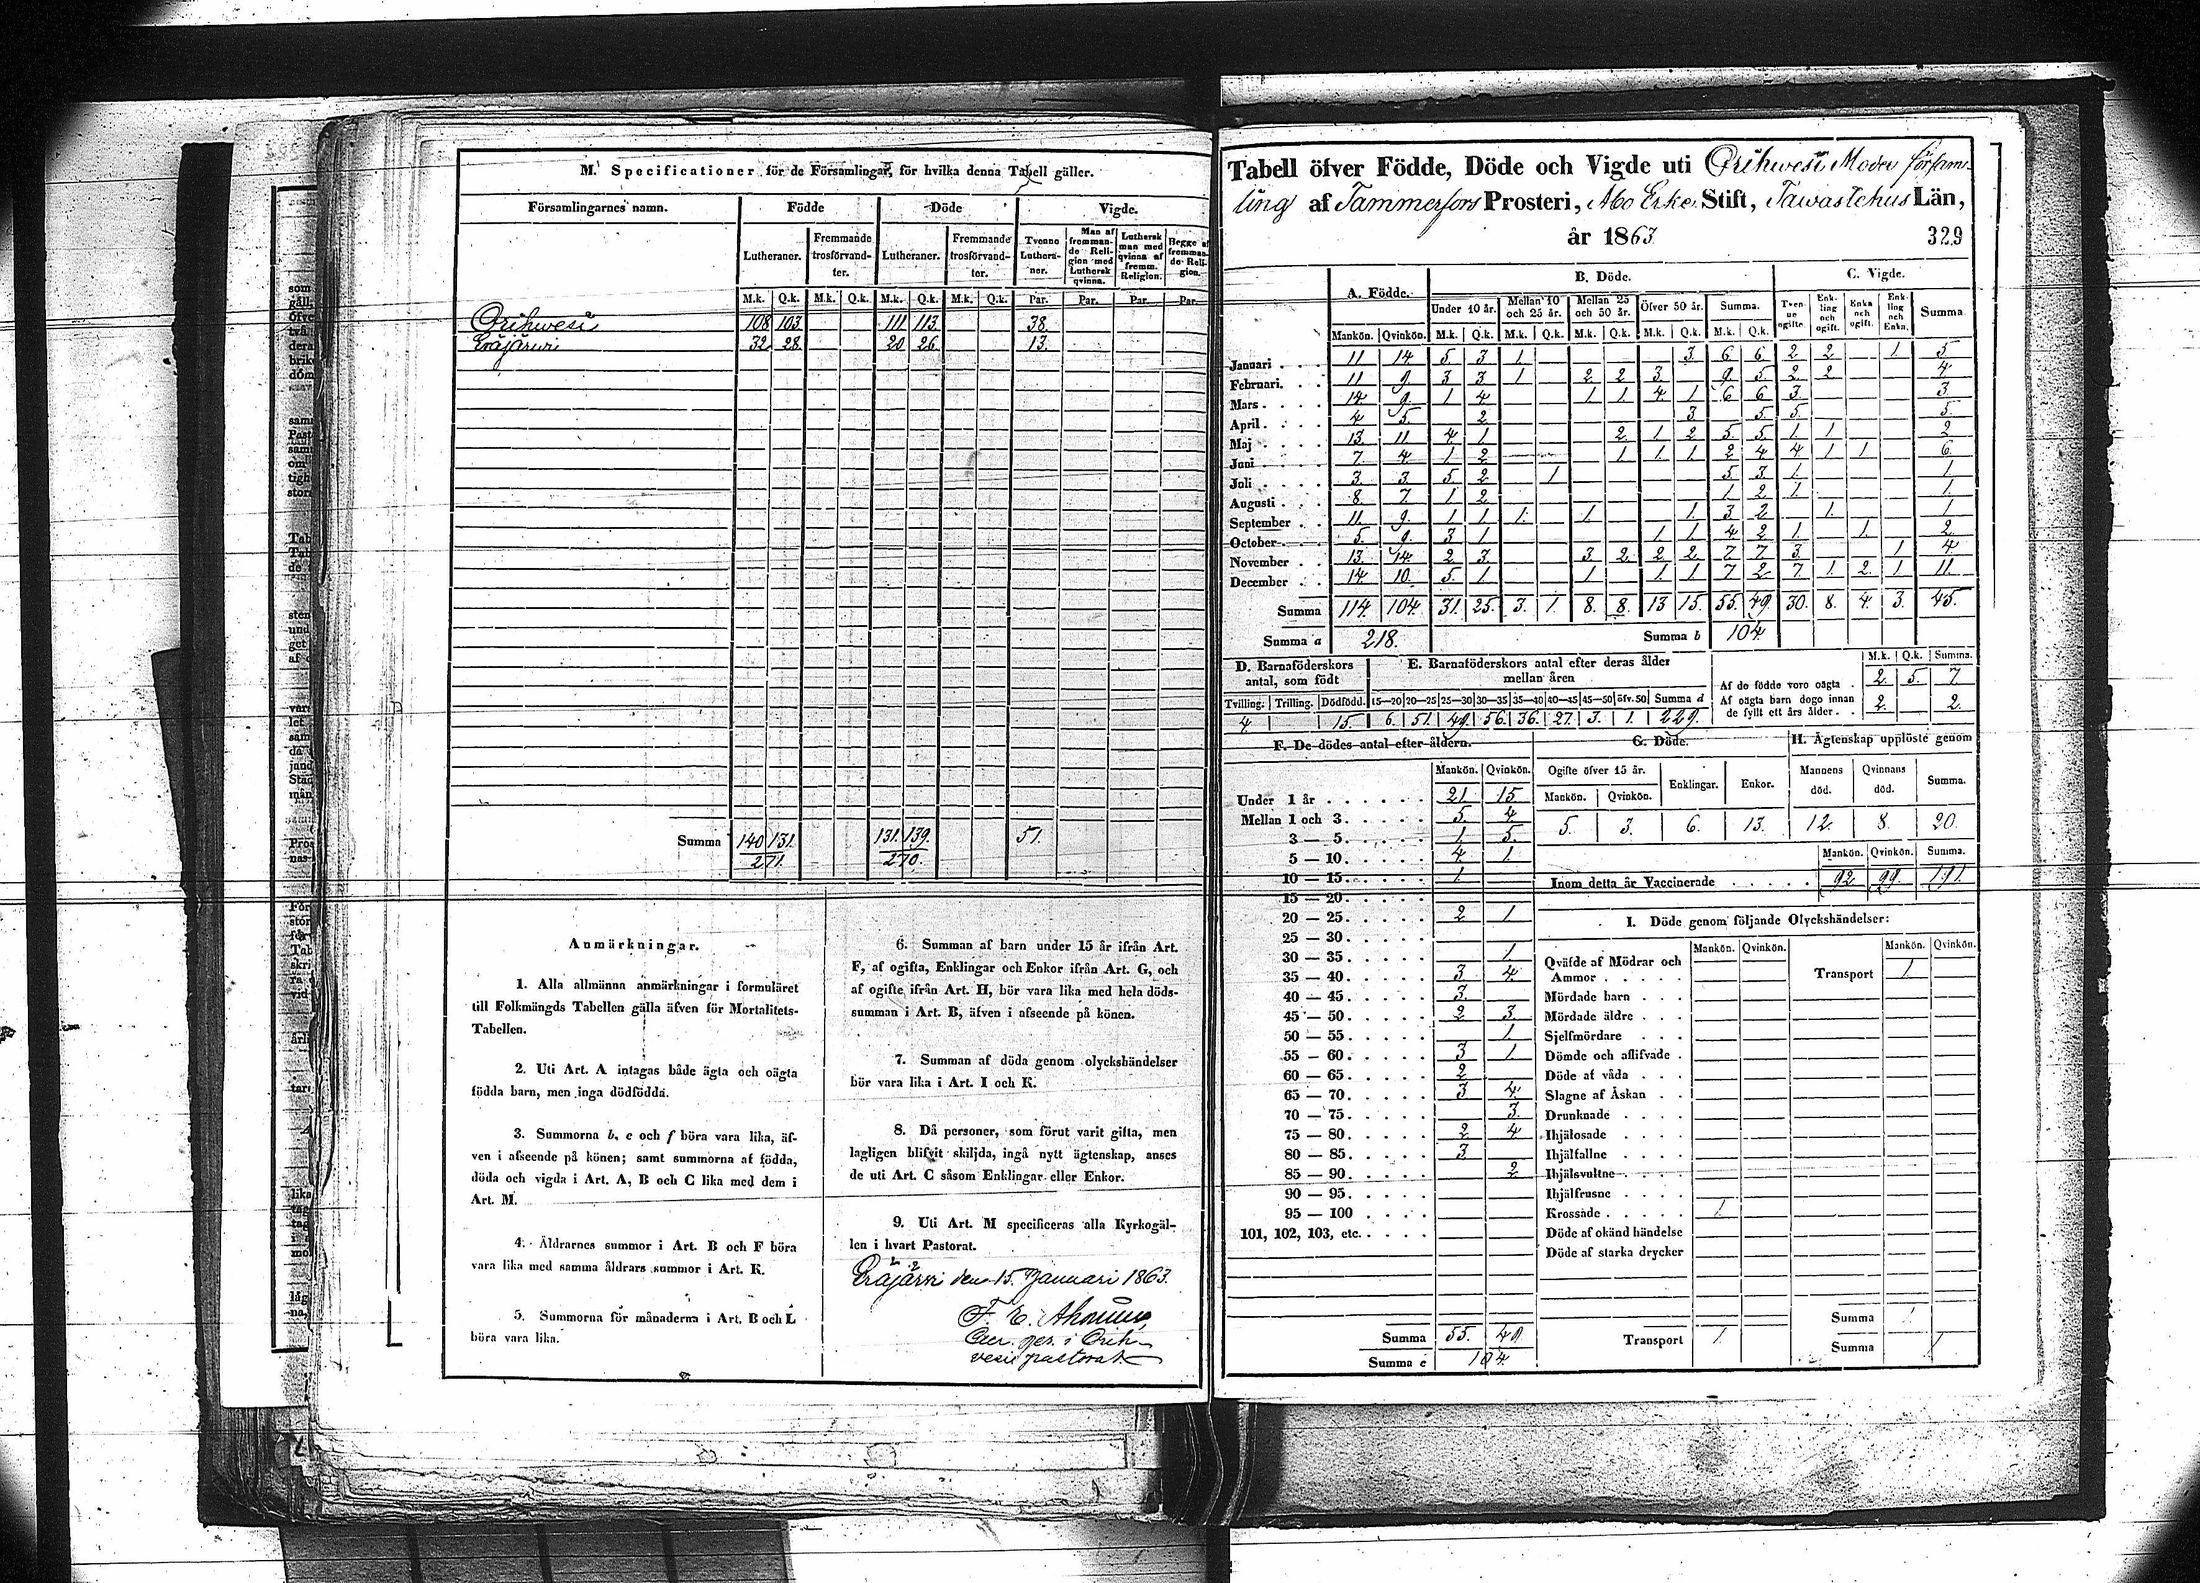 M. Specificationer för de Församlingar, för hvilka denna Tabell gäller.
Församlingarnes namn. Födde Döde Vigde.
Lutheraner. Fremmande trosförvandter. Lutheraner. Fremmande trosförvandter. Tvenne Lutheraner. Man af fremmande Religion med Luthersk qvinna. Luthersk man med qvinna af fremm. Religion. Begge af fremmande Religion.
M.k. Q.k. M.k. Q.k. M.k. Q.k. M.k. Q.k. Par. Par. Par. Par.
Orihwesi 108 103 111 113 38.
Eräjärwi 32 28 20 26 13.
Summa 140 131. 131. 139. 51.
271. 270.
Anmärkningar.
1. Alla allmänna anmärkningar i formuläret
till Folkmängds Tabellen gälla äfven för Mortalitets-
Tabellen.
2. Uti Art. A intagas både ägta och oägta
födda barn, men inga dödfödda.
3. Summorna b, c och f böra vara lika, äf-
ven i afseende på könen; samt summorna af födda,
döda och vigda i Art. A, B och C lika med dem i
Art. M.
4. Åldrarnes summor i Art. B och F böra
vara lika med samma åldrars summor i Art. K.
5. Summorna för månaderna i Art. B och L
böra vara lika.
6. Summan af barn under 15 år ifrån Art.
F, af ogifta, Enklingar och Enkor ifrån Art. G, och
af ogifte ifrån Art. H, bör vara lika med hela döds-
summan i Art. B, äfven i afseende på könen.
7. Summan af döda genom olyckshändelser
bör vara lika i Art. I och K.
8. Då personer, som förut varit gifta, men
lagligen blifvit skiljda, ingå nytt ägtenskap, anses
de uti Art. C såsom Enklingar eller Enkor.
9. Uti Art. M specificeras alla Kyrkogäl-
len i hvart Pastorat.
Eräjärwi den 15. Januari 1863.
F. E.
i Orih-
vesi pastorat.
Tabell öfver Födde, Döde och Vigde uti Orihwesi Moder församling
af Tammerfors Prosteri, Åbo Erke Stift, Tawastehus Län,
år 1863 329
A. Födde. B. Döde. C. Vigde.
Under 10 år. Mellan 10 och 25 år. Mellan 25 och 50 år. Öfver 50 år. Summa. Tvenne ogifte. Enkling och ogift. Enka och ogift. Enkling och Enka. Summa
Mankön. Qvinkön. M.k. Q.k. M.k. Q.k. M.k. Q.k. M.k. Q.k. M.k. Q.k.
Januari 11 14 5 3 1 3 6 6 2 2 1 5
Februari 11 9 3 3 1 2 2 3 9 5 2 2 4
Mars 14 9 1 4 1 1 4 1 6 6 3 3
April 4 5 2 3 5 5 5
Maj 13 11 4 1 2 1 2 5 5 1 1 2
Juni 7 4 1 2 1 1 1 2 4 4 1 1 6
Juli 3 3 5 2 1 5 3 1 1
Augusti 8 7 1 2 1 2 1 1
September 11 9 1 1 1 1 1 3 2 1 1
October 5 9 3 1 1 1 4 2 1 1 2
November 13 14 2 3 3 2 2 2 7 7 3 1 4
December 14 10 5 1 1 1 1 7 2 7 1 2 1 11
Summa 114 104 31 25 3 1 8 8 13 15 55 49 30 8 4 3 45
Summa a 218. Summa b 104
D. Barnaföderskors antal, som födt
E. Barnaföderskors antal efter deras ålder mellan åren
M.k. Q.k. Summa.
Af de födde voro oägta 2 5 7
Af oägta barn dogo innan de fyllt ett års ålder 2 2
Tvilling. Trilling. Dödfödd. 15—20 20—25 25—30 30—35 35—40 40—45 45—50 öfv. 50 Summa d
4 15 6 51 49 56 36 27 3 1 229
F. De dödes antal efter åldern.
Mankön. Qvinkön.
Under 1 år 21 15
Mellan 1 och 3 5 4
3 — 5 1 5
5 — 10 4 1
10 — 15 1
15 — 20
20 — 25 2 1
25 — 30
30 — 35 1
35 — 40 3 4
40 — 45 3
45 — 50 2 3
50 — 55 1
55 — 60 3 1
60 — 65 2
65 — 70 3 4
70 — 75 3
75 — 80 2 4
80 — 85 3
85 — 90 2
90 — 95
95 — 100
101, 102, 103, etc.
Summa 55 49
Summa c 104
G. Döde.
Ogifte öfver 15 år. Enklingar. Enkor.
Mankön. Qvinkön.
5. 3. 6. 13.
H. Ägtenskap upplöste genom
Mannens död. Qvinnans död. Summa.
12. 8. 20.
Mankön. Qvinkön. Summa.
Inom detta år Vaccinerade 92 99 191
I. Döde genom följande Olyckshändelser:
Mankön. Qvinkön. Mankön. Qvinkön.
Qväfde af Mödrar och Ammor Transport 1
Mördade barn
Mördade äldre
Sjelfmördare
Dömde och aflifvade
Döde af våda
Slagne af Åskan
Drunknade
Ihjälosade
Ihjälfallne
Ihjälsvultne
Ihjälfrusne
Krossade 1
Döde af okänd händelse
Döde af starka drycker
Summa 1
Transport 1 Summa 1